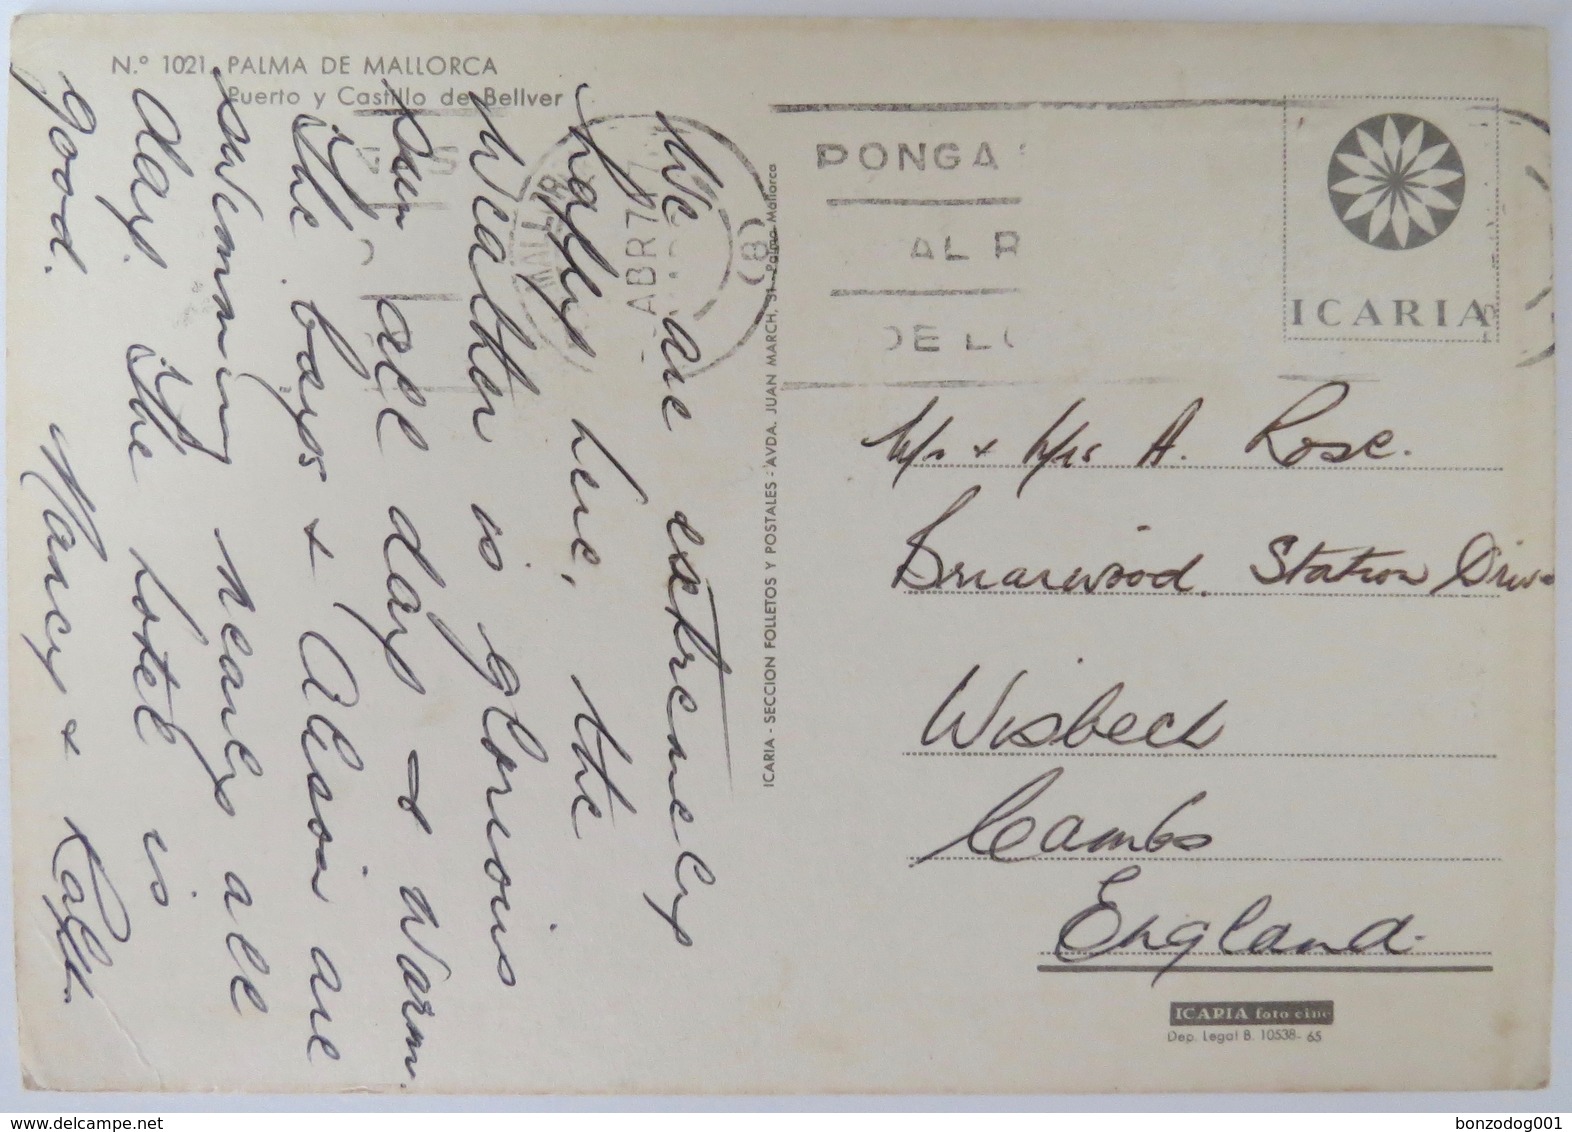 N.º 1021 PALMA DE MALLORCA
Puerto y Castillo de Bellver
We are extremely
happy here, the
Weather is glorious
Sun all day & warm.
The boys & Alison are
swimming nearly all
day. The hotel is
good. Nancy & Ralph
MALLOR
ABR
(8)
PONGA
AL R
DE LO
ICARIA - SECCION FOLLETOS Y POSTALES - AVDA. JUAN MARCH, 31 - Palma Mallorca
ICARIA
Mr & Mrs A. Rose.
Briarwood. Station Drive
Wisbech
Cambs
England.
ICARIA foto cine
Dep. Legal B. 10538-65
bonzodog001